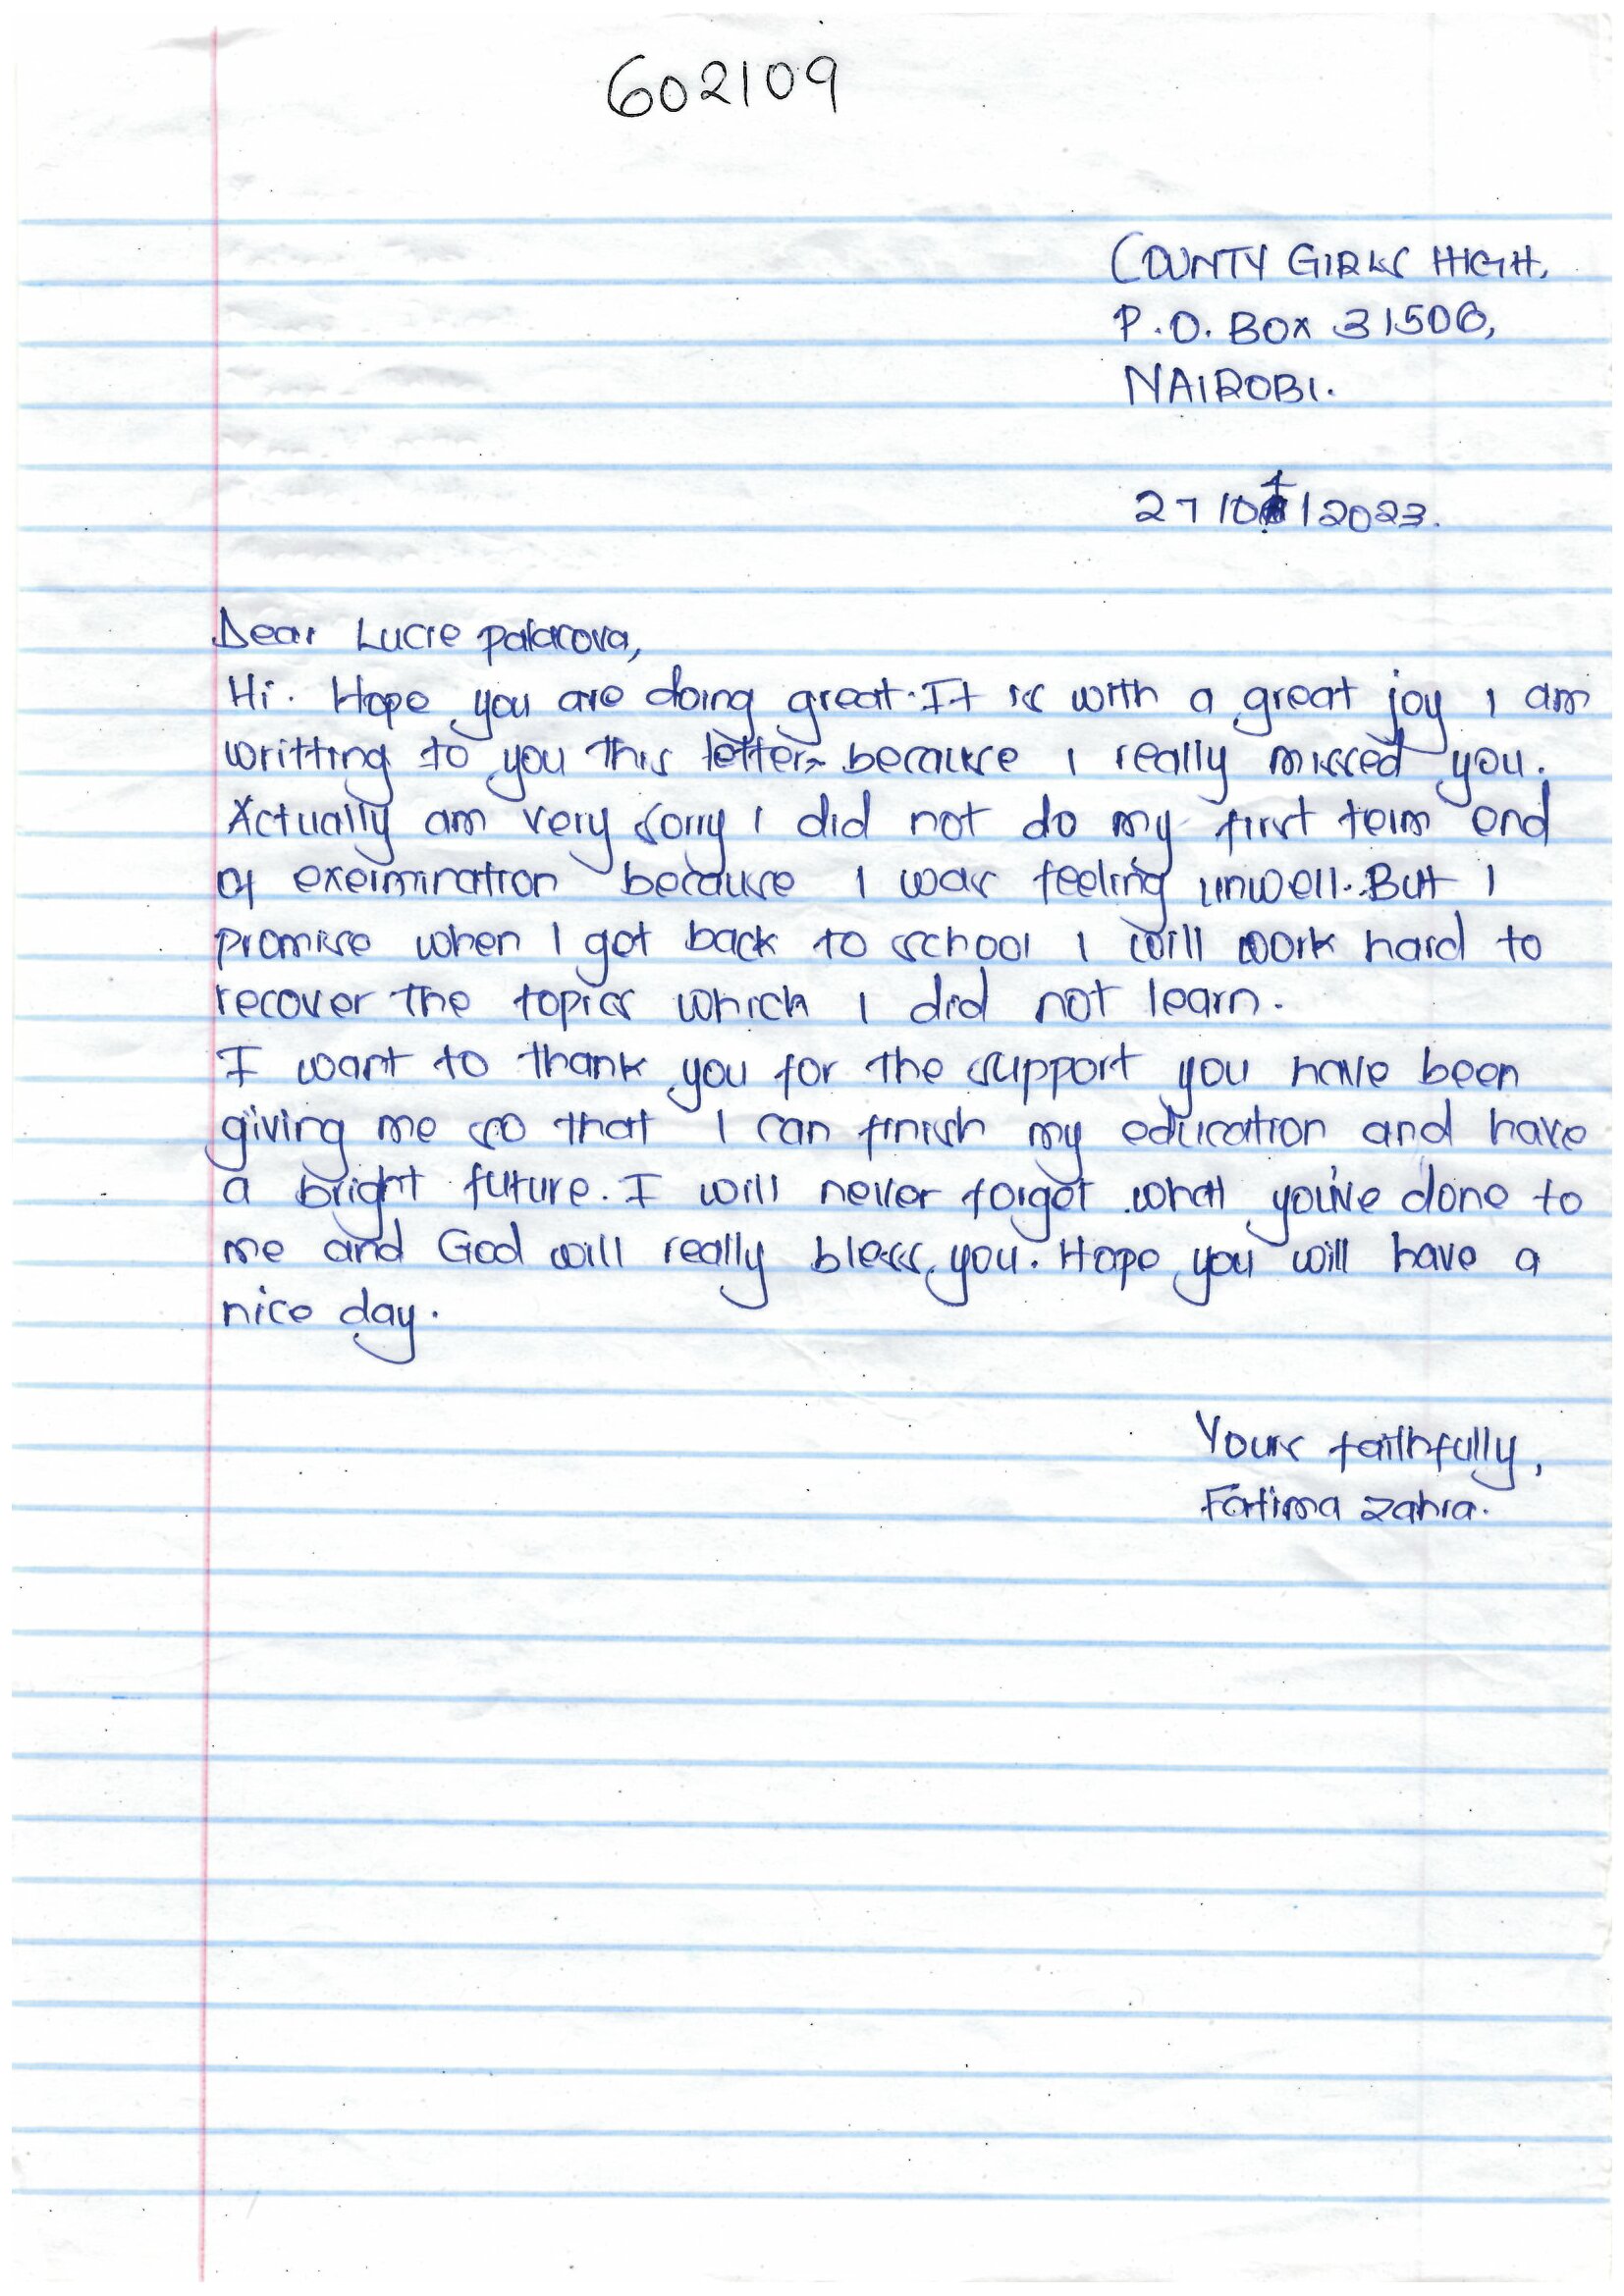 602109
COUNTY GIRLS HIGH,
P.O. BOX 31506,
NAIROBI.
27/04/2023.
Dear Lucie palacova,
Hi. Hope you are doing great. It is with a great joy I am
writting to you this letter because I really missed you.
Actually am very sorry I did not do my first term end
of exeimination because I was feeling unwell. But I
promise when I get back to school I will work hard to
recover the topics which I did not learn.
I want to thank you for the support you have been
giving me so that I can finish my education and have
a bright future. I will never forget what you've done to
me and God will really bless you. Hope you will have a
nice day.
Yours faithfully,
Fatima zahra.